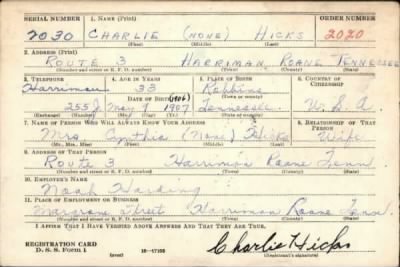 SERIAL NUMBER 1. NAME (Print) ORDER NUMBER
2030 CHARLIE (NONE) HICKS 2020
(First) (Middle) (Last)
2. ADDRESS (Print)
ROUTE 3 HARRIMAN, ROANE TENNESSEE
(Number and street or R. F. D. number) (Town) (County) (State)
3. TELEPHONE 4. AGE IN YEARS 5. PLACE OF BIRTH 6. COUNTRY OF CITIZENSHIP
Harriman 33 Robbins
DATE OF BIRTH (Town or county)
255 J May 9 1907 Tennessee U. S. A.
(Exchange) (Number) (Mo.) (Day) (Yr.) (State or country)
7. NAME OF PERSON WHO WILL ALWAYS KNOW YOUR ADDRESS 8. RELATIONSHIP OF THAT PERSON
Mrs. Cynthia (None) Hicks Wife
(Mr., Mrs., Miss) (First) (Middle) (Last)
9. ADDRESS OF THAT PERSON
Route 3 Harriman Roane Tenn
(Number and street or R. F. D. number) (Town) (County) (State)
10. EMPLOYER'S NAME
Noah Harding
11. PLACE OF EMPLOYMENT OR BUSINESS
Street Harriman Roane Tenn
(Number and street or R. F. D. number) (Town) (County) (State)
I AFFIRM THAT I HAVE VERIFIED ABOVE ANSWERS AND THAT THEY ARE TRUE.
REGISTRATION CARD
D. S. S. Form 1 (over) Charlie Hicks
(Registrant's signature)